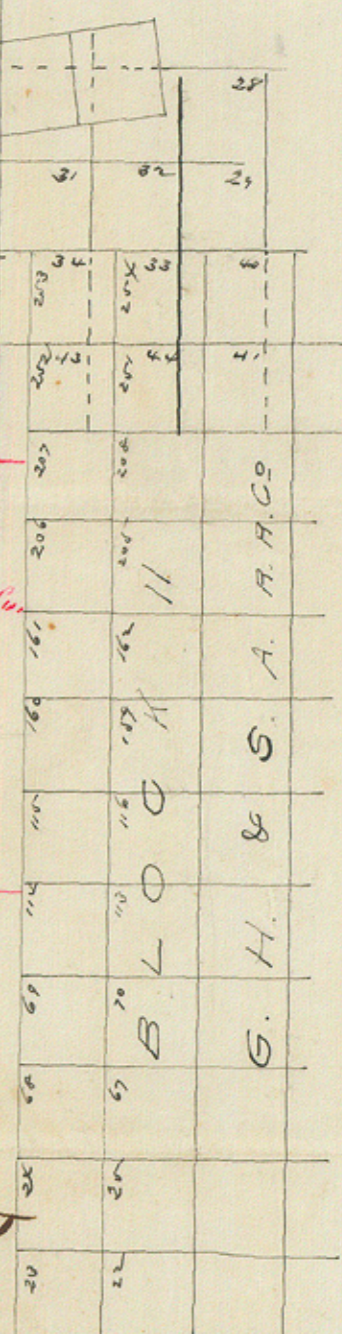 28
31 32 29
34 33
253 254
43 44 41
252 251
207 208
206 205
161 162
160 159
115 116
114 113
69 70
68 67
24 25
23 22
BLOCK 11
G. H. & S. A. R.R. Co